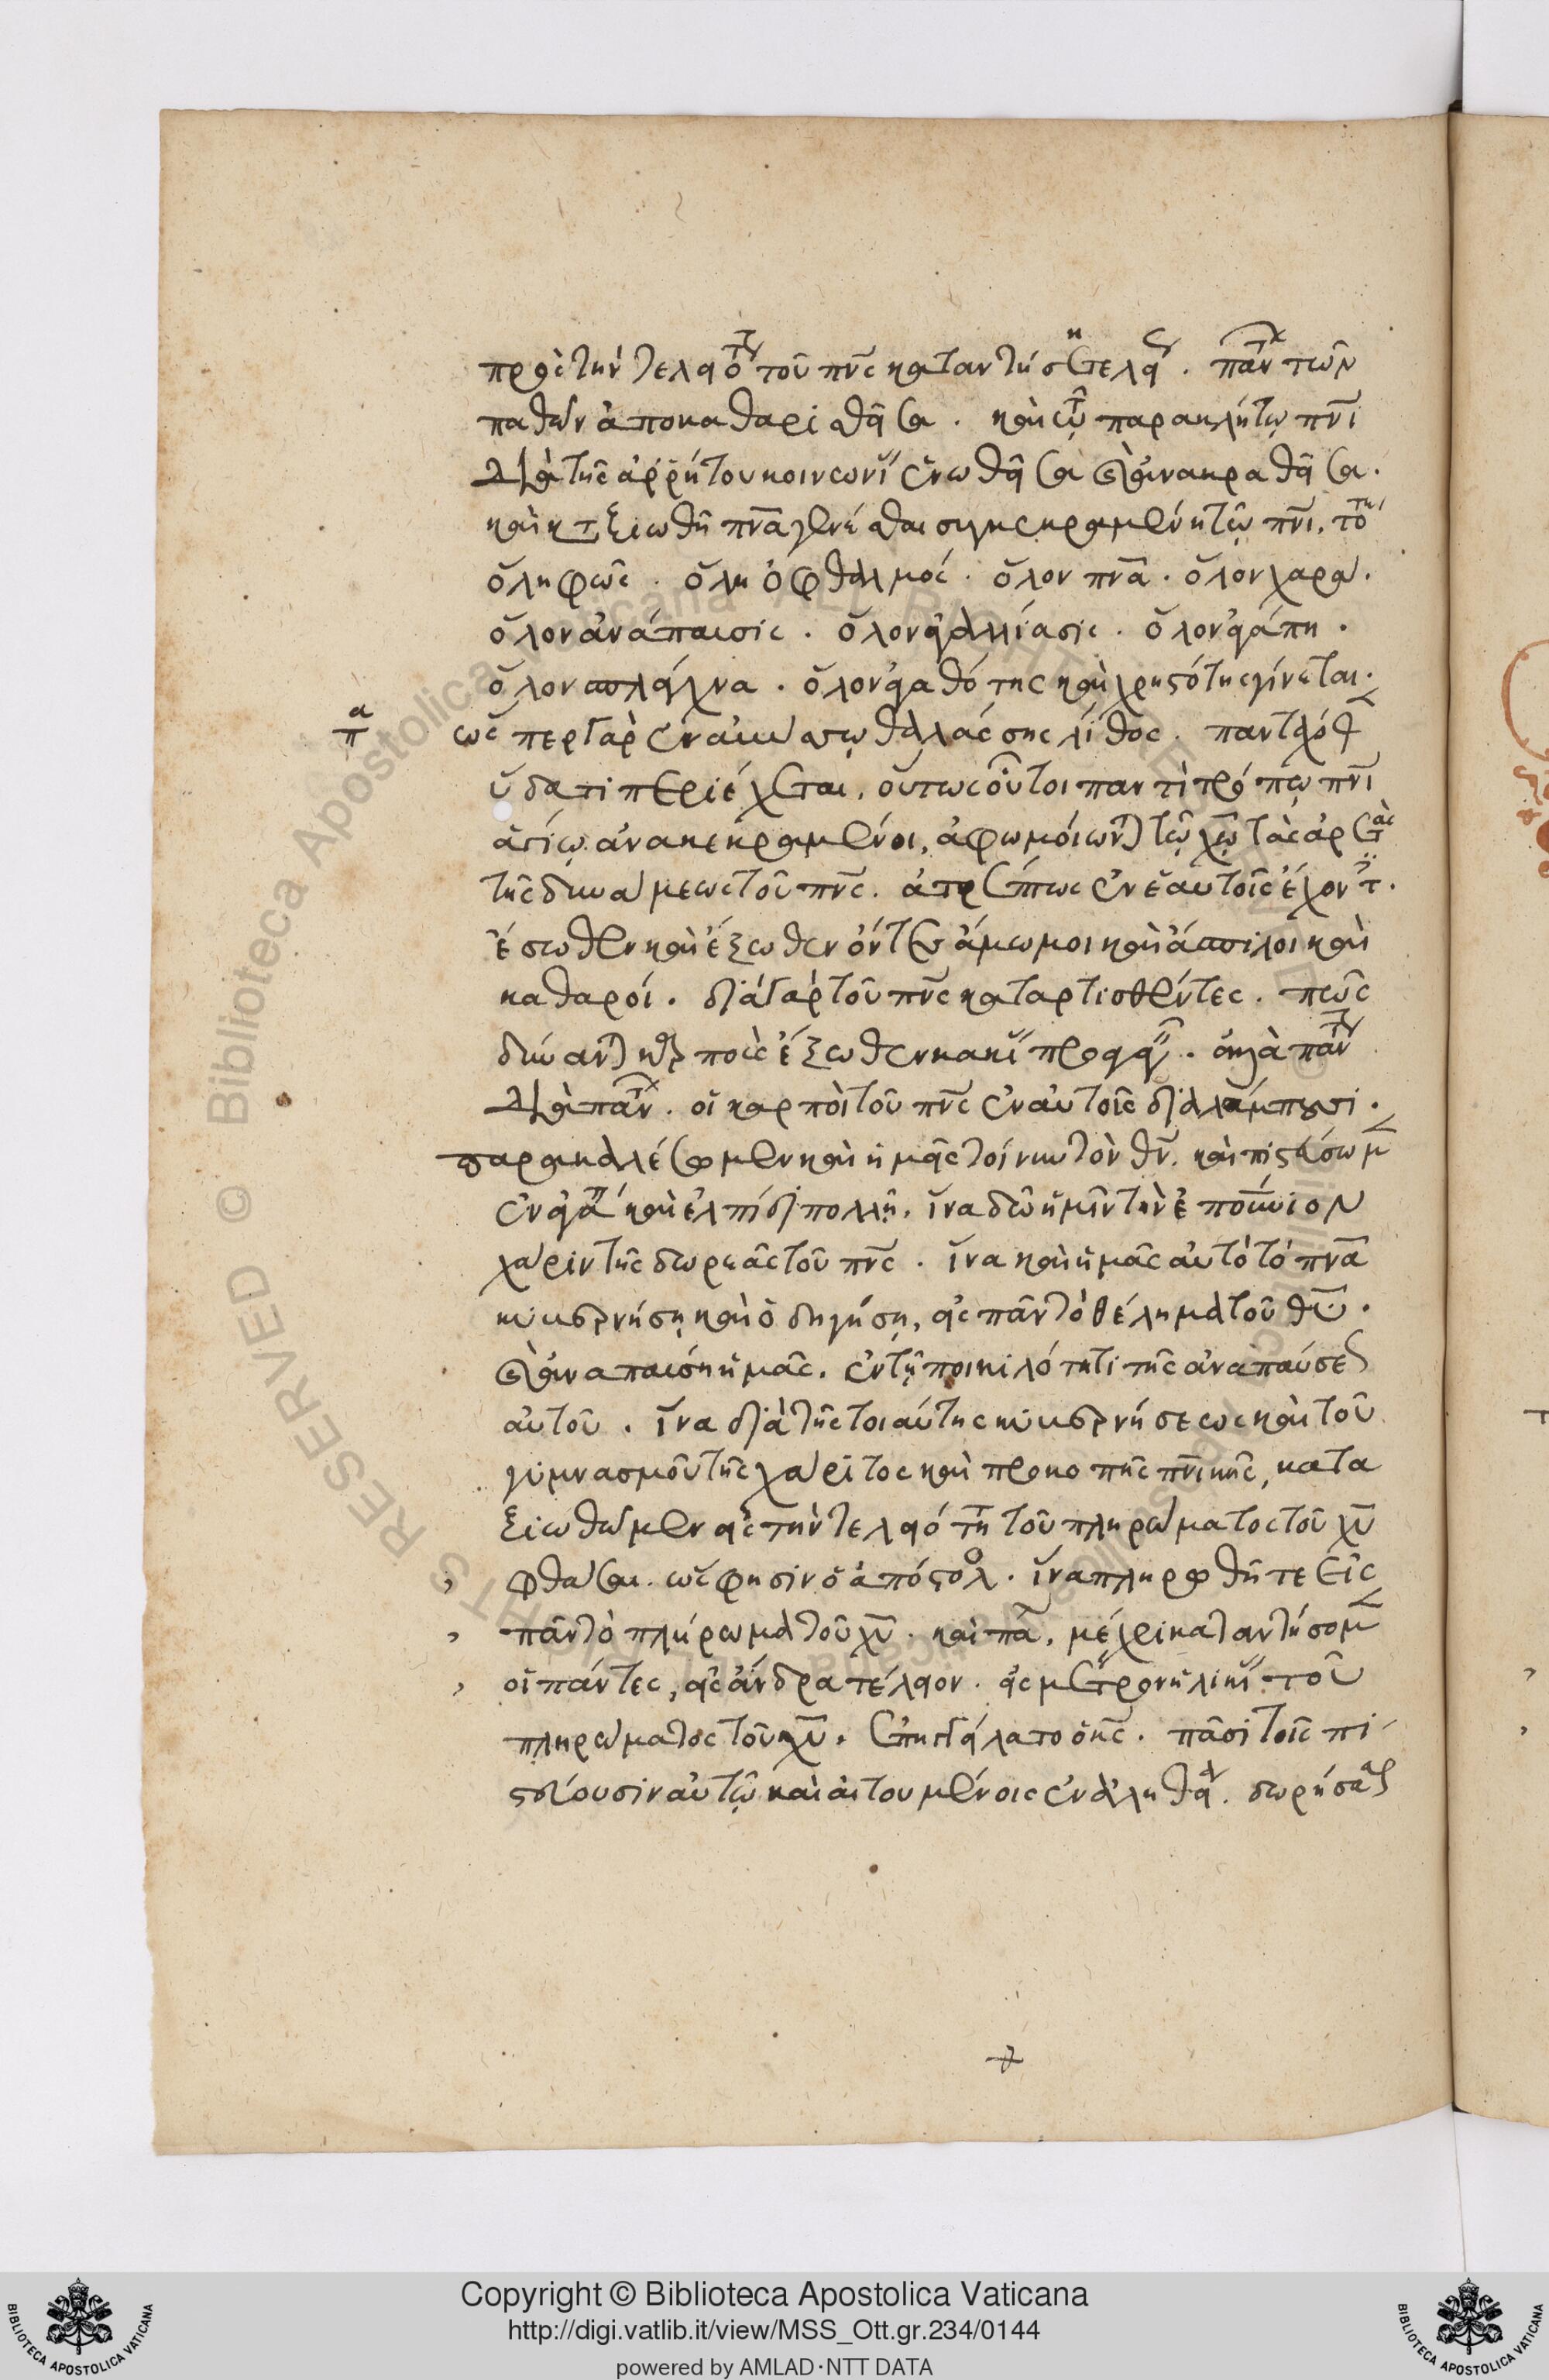 πρὸς τὴν τελειότητα τοῦ πνς καταντήσῃ τελείαν. πάντων τῶν
παθῶν ἀποκαθαρισθεῖσα. καὶ τῷ παρακλήτῳ πνι
διὰ τῆς ἀρρήτου κοινωνίας ἑνωθεῖσα καὶ ἀνακραθεῖσα.
καὶ καταξιωθῇ πνα γενέσθαι συγκεκραμένη τῷ πνι. τότε
ὅλη φῶς. ὅλη ὀφθαλμός. ὅλον πνα. ὅλον χαρά.
ὅλον ἀνάπαυσις. ὅλον ἀγαλλίασις. ὅλον ἀγάπη.
ὅλον σπλάγχνα. ὅλον ἀγαθότης καὶ χρηστότης γίνεται.
ὥσπερ γὰρ ἐν ἀβύσσῳ θαλάσσης λίθος. πανταχόθεν
ὕδατι περιέχεται. οὕτως οὗτοι παντὶ τρόπῳ πνι
ἁγίῳ ἀνακεκραμένοι, ἀφωμοίωνται τῷ χῷ τὰς ἀρετὰς
τῆς δυνάμεως τοῦ πνς. ἀτρέπτως ἐν ἑαυτοῖς ἔχοντες.
ἔσωθεν καὶ ἔξωθεν ὄντες ἄμωμοι καὶ ἄσπιλοι καὶ
καθαροί. διὰ γὰρ τοῦ πνς καταρτισθέντες. πῶς
δύνανται καρποὺς ἔξωθεν κακίας προάγειν. ἀλλὰ πάντοτε
διὰ πάντων. οἱ καρποὶ τοῦ πνς ἐν αὐτοῖς διαλάμπουσι.
παρακαλέσωμεν καὶ ἡμεῖς τοίνυν τὸν θν. καὶ πιστεύσωμεν
ἐν ἀγάπῃ καὶ ἐλπίδι πολλῇ. ἵνα δῷ ἡμῖν τὴν ἐπουνιον
χάριν τῆς δωρεᾶς τοῦ πνς. ἵνα καὶ ἡμᾶς αὐτὸ τὸ πνα
κυβερνήσῃ καὶ ὁδηγήσῃ, εἰς πᾶν τὸ θέλημα τοῦ θυ.
καὶ ἀναπαύσῃ ἡμᾶς. ἐν τῇ ποικιλότητι τῆς ἀναπαύσεως
αὐτοῦ. ἵνα διὰ τῆς τοιαύτης κυβερνήσεως καὶ τοῦ
γυμνασμοῦ τῆς χάριτος καὶ προκοπῆς πνικῆς, κατα
ξιωθῶμεν εἰς τὴν τελειότητα τοῦ πληρώματος τοῦ χυ
φθάσαι. ὥς φησιν ὁ ἀπόστολος. ἵνα πληρωθῆτε εἰς
πᾶν τὸ πλήρωμα τοῦ χυ. καὶ πάλιν. μέχρι καταντήσομεν
οἱ πάντες, εἰς ἄνδρα τέλειον. εἰς μέτρον ἡλικίας τοῦ
πληρώματος τοῦ χυ. ἐπηγγείλατο ὁ κς. πᾶσι τοῖς πι
στεύουσιν αὐτῷ καὶ αἰτουμένοις ἐν ἀληθείᾳ. δωρήσασθαι
Copyright © Biblioteca Apostolica Vaticana
http://digi.vatlib.it/view/MSS_Ott.gr.234/0144
powered by AMLAD·NTT DATA